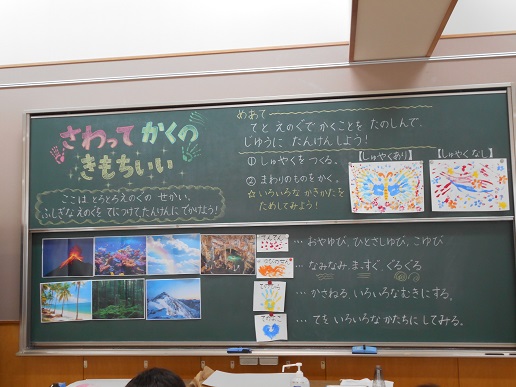 さわって かくの
きもちいい
ここは とろとろえのぐの せかい。
ふしぎな えのぐを てにつけて たんけんに でかけよう！
めあて
てと えのぐで かくことを たのしんで、
じゆうに たんけんしよう！
① しゅやくを つくる。
② まわりのものを かく。
☆いろいろな かきかたを
ためしてみよう！
【しゅやくあり】
【しゅやくなし】
…おやゆび、ひとさしゆび、こゆび
…なみなみ、まっすぐ、ぐるぐる
…かさねる、いろいろなむきにする。
…てを いろいろな かたちに してみる。